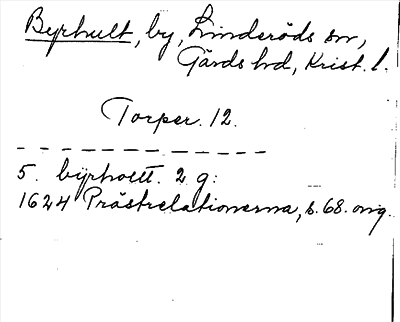 Byrhult, by, Linderöds sn,
Gärds hd, Krist. l.
Torper. 12.
5. byrholtt. 2 g:
1624 Prästrelationerna, s. 68. orig.